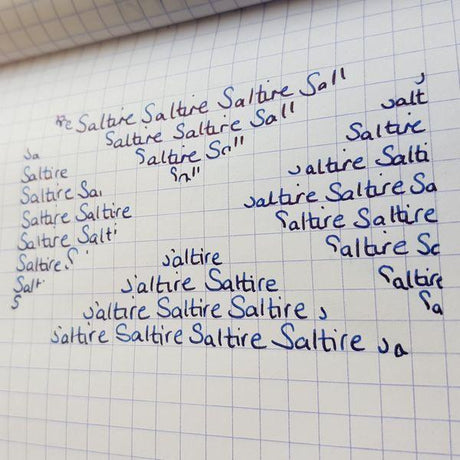 re Saltire Saltire Saltire Sall
Saltire Saltire Sall
Saltire Sall
Sall
Sa
Saltire
Saltire Sa
Saltire Saltire
Saltire Salti
Saltire S
Salt
S
Salt
Saltire
Saltire Salti
Saltire Saltire Sa
Saltire Saltire
Saltire Sa
Saltire
Sa
Saltire
Saltire Saltire
Saltire Saltire Saltire S
Saltire Saltire Saltire Saltire Sa